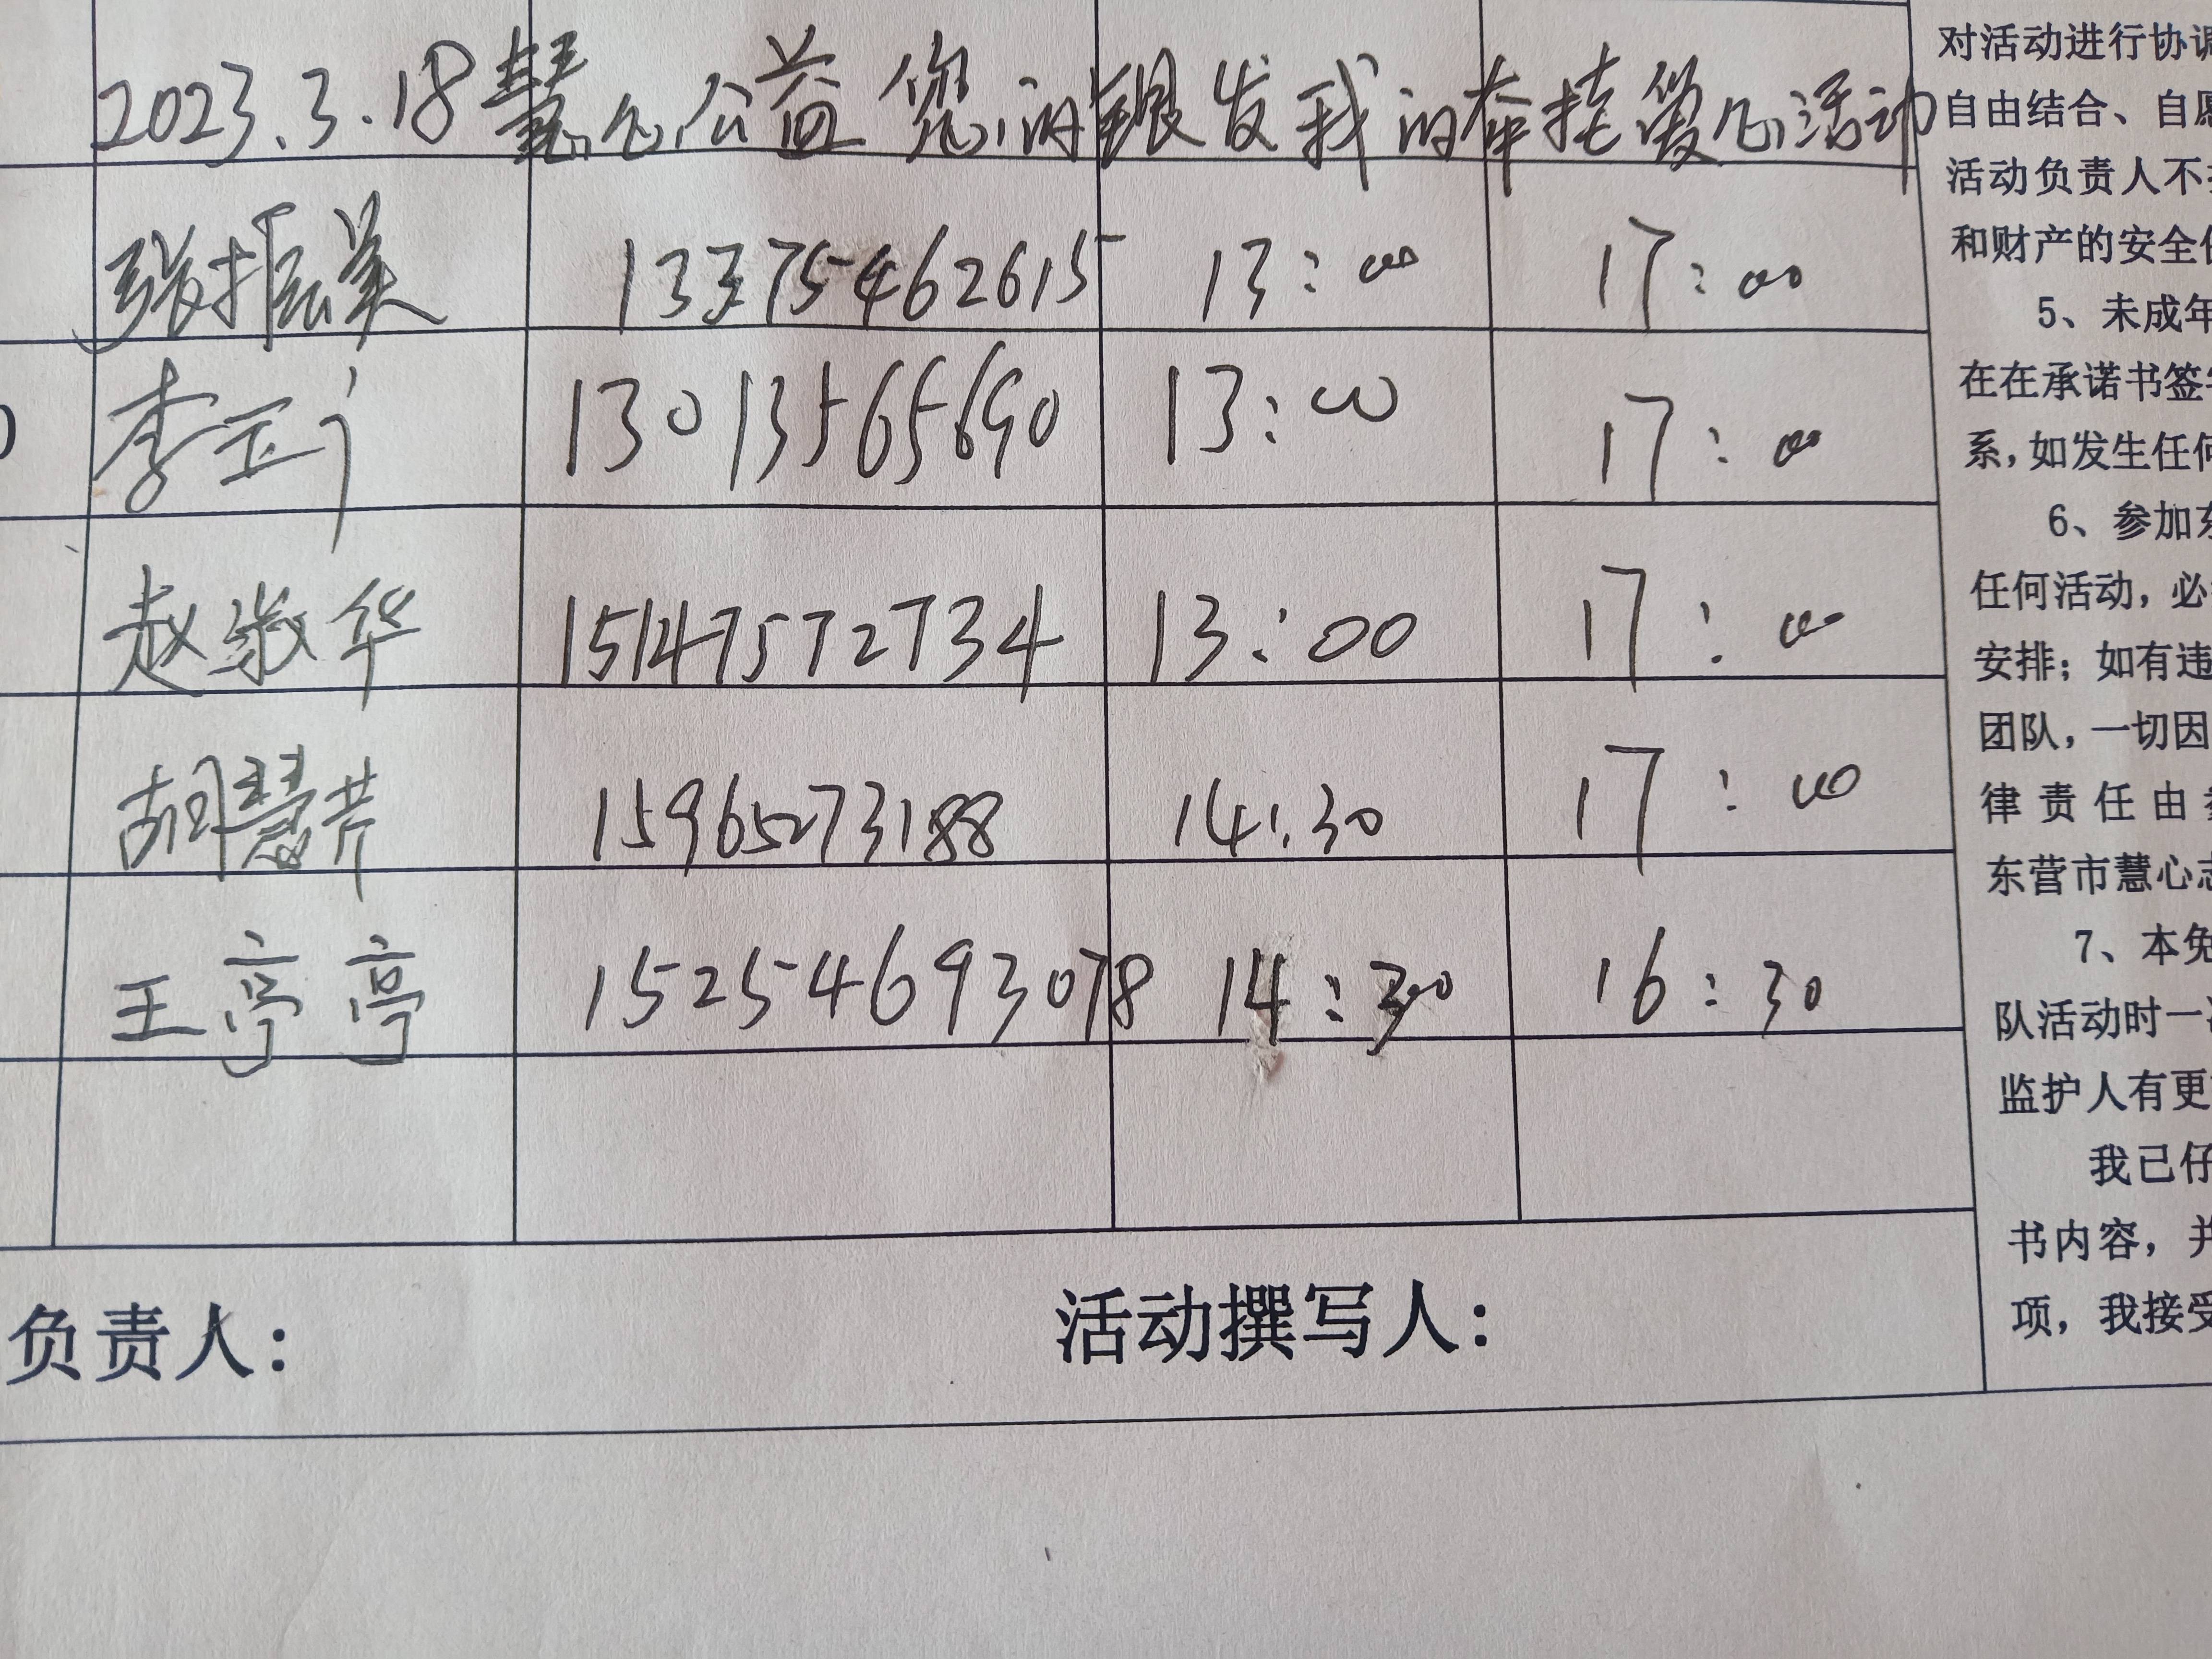 2023.3.18慧心公益 您的银发我的牵挂爱心活动
张振美 13375462615 13:00 17:00
李玉 13013565690 13:00 17:00
赵淑华 15147572734 13:00 17:00
胡慧芹 15965273188 14:30 17:00
王亭亭 15254693078 14:30 16:30
负责人: 活动撰写人:
对活动进行协调
自由结合、自愿
活动负责人不
和财产的安全
5、未成年
在在承诺书签字
系,如发生任何
6、参加东
任何活动,必
安排;如有违
团队,一切因
律责任由
东营市慧心志
7、本免
队活动时一
监护人有更
我已仔
书内容,并
项,我接受